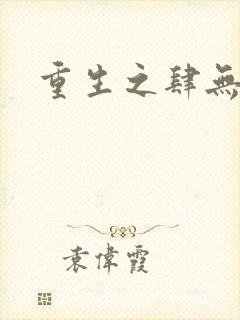 重生之肆無
袁偉霞